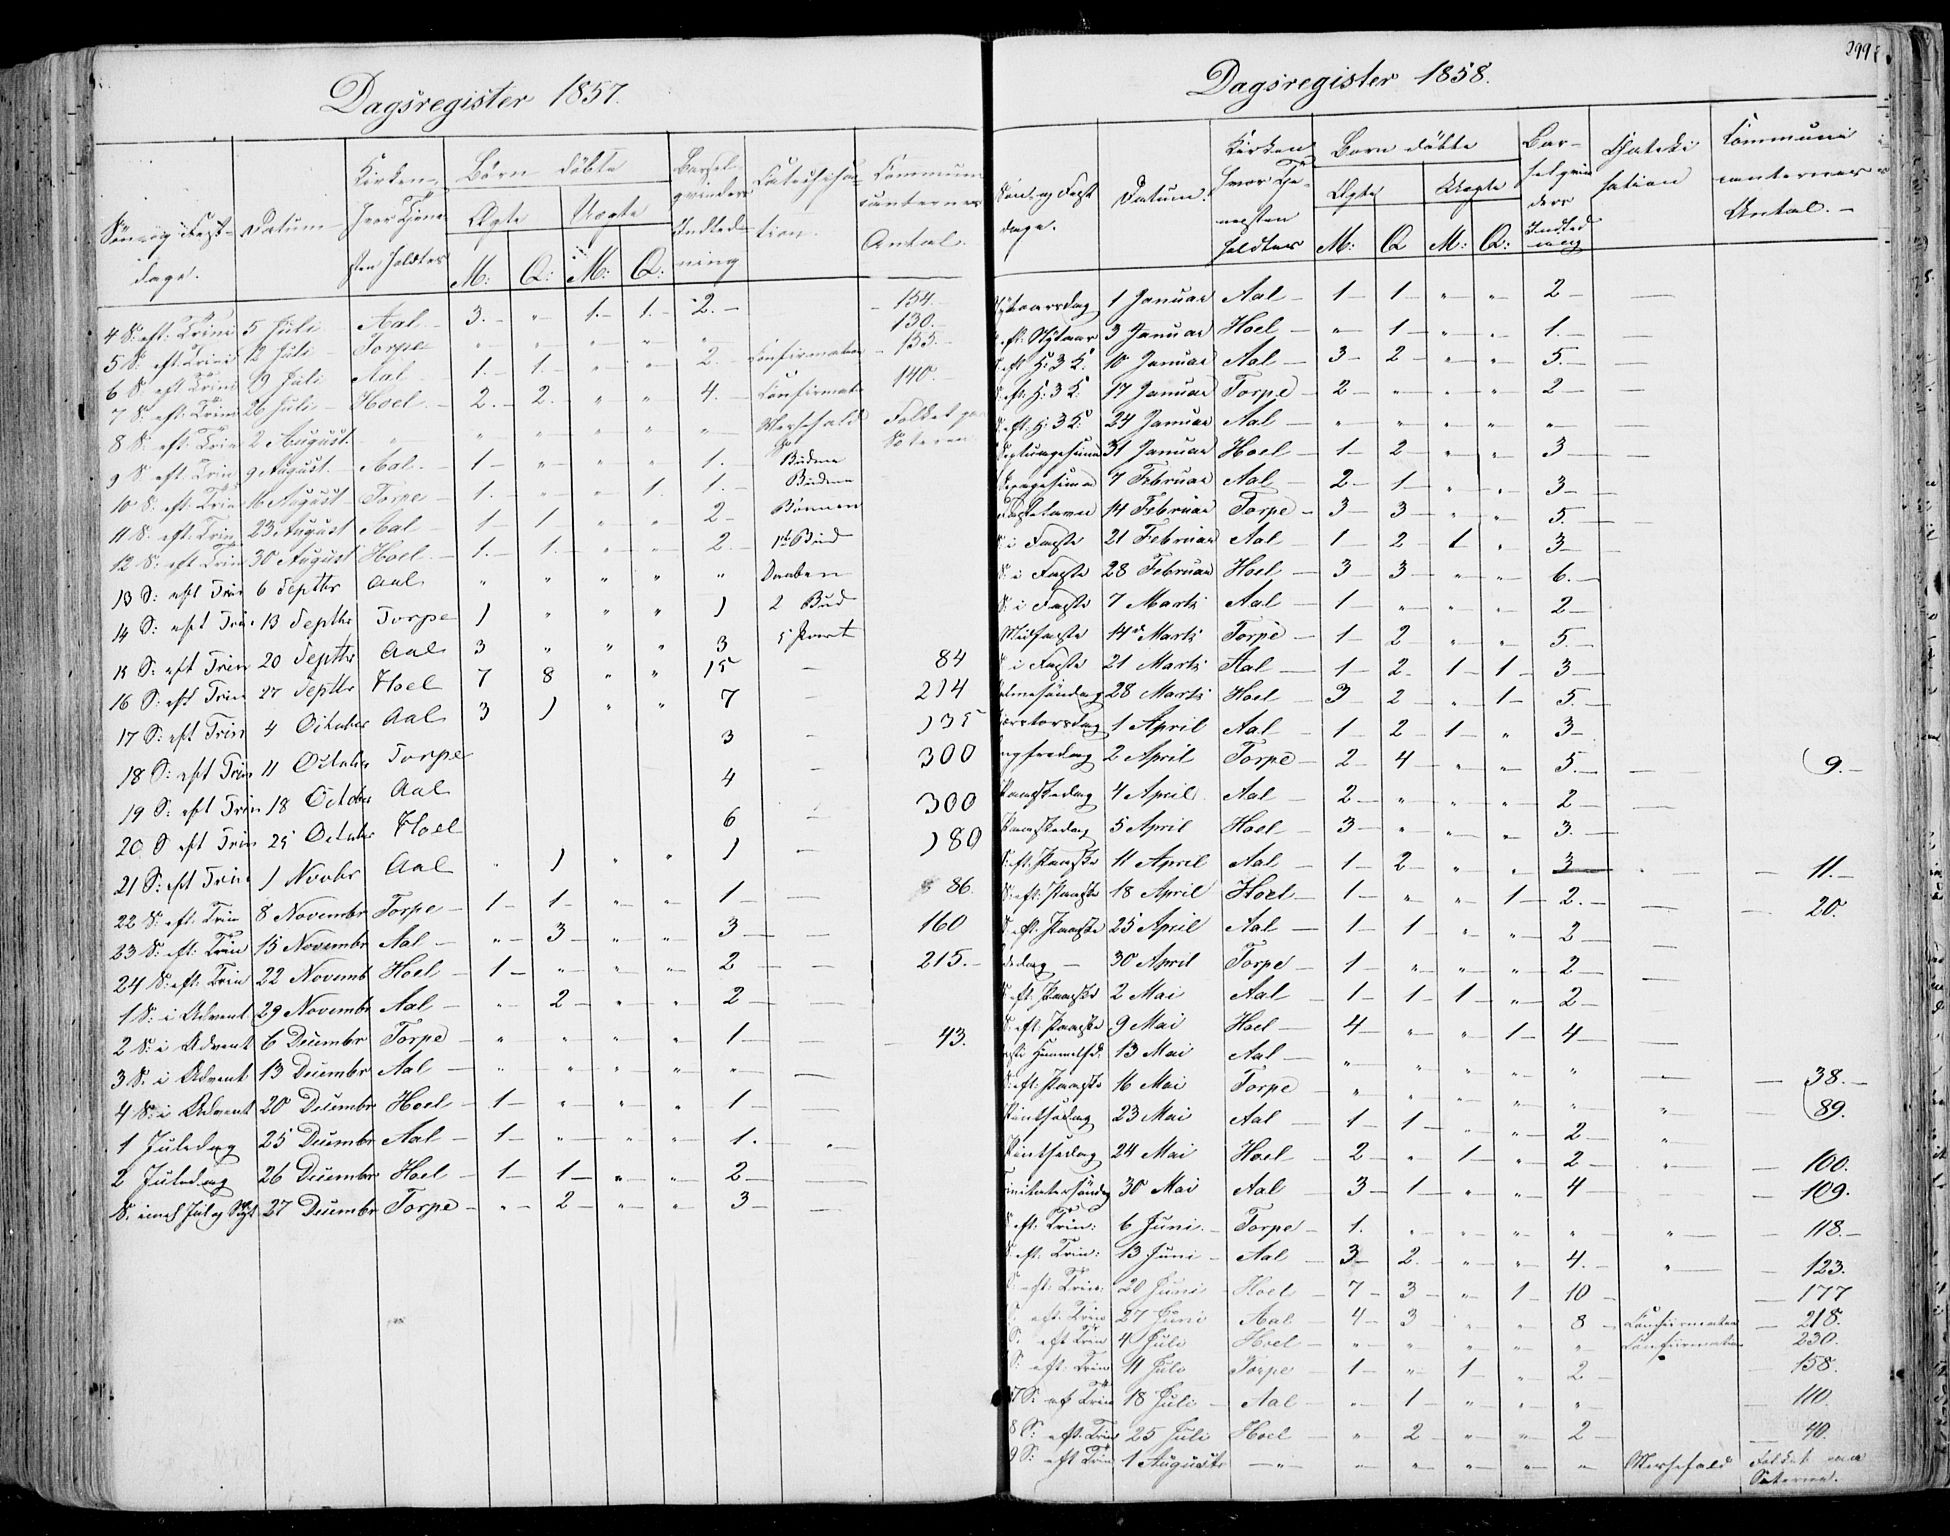 Dagsregister 1857.
Søn- og Fest-dage. Datum Kirken, hvor Tjenesten holdtes Børn døbte Ægte M: Q: Uægte M: Q: Barselqvinders Indledning Catechisation. Communicanternes Antal.
4 S. eft. Trini 5 Juli Aal 3. " 1. 1. 2. 154.
5 S. eft. Trini 12 Juli Torpe " " " " " 130.
6 S. eft. Trini 19 Juli Aal 1. 1. " " 2. Confirmation 155.
7 S. eft. Trini 26 Juli Hoel 2. 2. " " 4. Confirmation 140.
8 S. eft. Trin 2 August " " " " " " Messefald Folket paa Sæteren
9 S. eft. Trin 9 August Aal 1 " " " 1. Budene
10 S. eft. Trin 16 August Torpe 1. " " 1 1. Budene
11 S. eft. Trin 23 August Aal 1 1 " " 2 Bønnen
12 S. eft. Trin 30 August Hoel 1. 1. " " 2. 1ste Bud
13 S: eft Trin 6 Septbr Aal " " " " " Daaben
14 S: eft Trin 13 Septbr Torpe 1 " " " 1 2 Bud
15 S: eft Trin 20 Septbr Aal 3 " " " 3 5 Part 84
16 S: eft Trin 27 Septbr Hoel 7 8 " " 15 214
17 S: eft Trin 4 October Aal 3 1 " " 7 135
18 S: eft Trin 11 October Torpe 3 300
19 S: eft Trin 18 October Aal 4 300
20 S eft Trin 25 October Hoel 6 180
21 S: eft Trin 1 Novbr Aal " 1 " " 1 86
22 S: eft. Trin 8 Novembr Torpe 1 1 " " 1 160
23 S: eft: Trin 15 Novembr Aal " 3 " " 3 215.
24 S: eft: Trin 22 Novemb Hoel 1 " " " 2
1 S: i Advent 29 Novembr Aal " 2 " " 2 43.
2 S: i Advent 6 Decembr Torpe " " " " 1
3 S. i Advent 13 Decembr Aal " " " " "
4 S: i Advent 20 Decembr Hoel 1 " " " 1
1 Juledag 25 Decembr Aal 1 " " " 1. "
2 Juledag 26 Decembr Hoel 1 1 " " 2
S. imel Jul og Nyt 27 Decembr Torpe " 2 " " 3
299
Dagsregister 1858.
Søn- og Fest dage. Datum. Kirken hvor Tjenesten holdtes Børn døbte Ægte M: Q Uægte M: Q: Barselqvinders Indledning Catekisation Communicanternes Antal.
Nytaarsdag 1 Januar Aal 1 1 " " 2
eft. Nytaar 3 Januar Hoel " 1 " " 1.
eft H. 3 K. 10 Januar Aal 3 2 " " 5.
eft: H. 3 K. 17 Januar Torpe 2 " " " 2
S. eft. H. 3 K. 24 Januar Aal " " " " "
Septuagesima 31 Januar Hoel 1 2 " " 3
Sexagesima 7 Februar Aal 2 1 " " 3
Fastelavn 14 Februar Torpe 3 3 " " 5.
S. i Faste 21 Februar Aal 1 2 1 " 3
S. i Faste 28 Februar Hoel 3 3 " " 6.
S. i Faste 7 Marts Aal 1 " " " 2
Midfaste 14 Marts Torpe 1 2 " " 5.
S. i Faste 21 Marts Aal 1 2 1 1 3
Palmesøndag 28 Marts Hoel 3 2 " 1 5.
Skjærtorsdag 1 April Aal 1 2 1 " 3
Langfredag 2 April Torpe 2 4 " " 5. 9.
Paaskedag 4 April Aal 2 " " " 2
Paaskedag 5 April Hoel 3 " " " 3.
S. eft. Paaske 11 April Aal 1 2 " " 3 11.
S. eft. Paaske 18 April Hoel 1 " " 1 2. 20.
S eft. Paaske 25 April Aal 1 1 " " 2
dedag 30 April Torpe 1 " " " 2
S. eft. Paaske 2 Mai Aal 1 1 1 " 2
S. eft. Paaske 9 Mai Hoel 4 " " 1 4
Christi Himmelfd. 13 Mai Aal " " " " "
S. eft. Paaske 16 Mai Torpe " " " " " " 38.
Pintsedag 23 Mai Aal 1 1 " " 2 " 89.
Pintsedag 24 Mai Hoel 2 " 1 " 2 " 100.
Trinitatessøndag 30 Mai Aal 3 1 " " 4 109.
S eft. Trin: 6 Juni Torpe 1. " " " " " 118.
S. eft. Trin: 13 Juni Aal 3 2. " " 4. " 123.
S. eft. Trin: 20 Juni Hoel 7 3 " 1 10 177
S. eft. Trin 27 Juni Aal 4 3 " " 8 Confirmation 218.
S. eft Trin 4 Juli Hoel " " " " " Confirmation 230.
S. eft. Trin 11 Juli Torpe 1 " 1 " 2 158.
7 S. eft Trin 18 Juli Aal " 1 " " " 110.
8 S: eft. Trin 25 Juli Hoel " 2 " " 2 40.
9 S: eft Trin 1 Augusts " " " " " " Messefald Folket paa Sæteren.